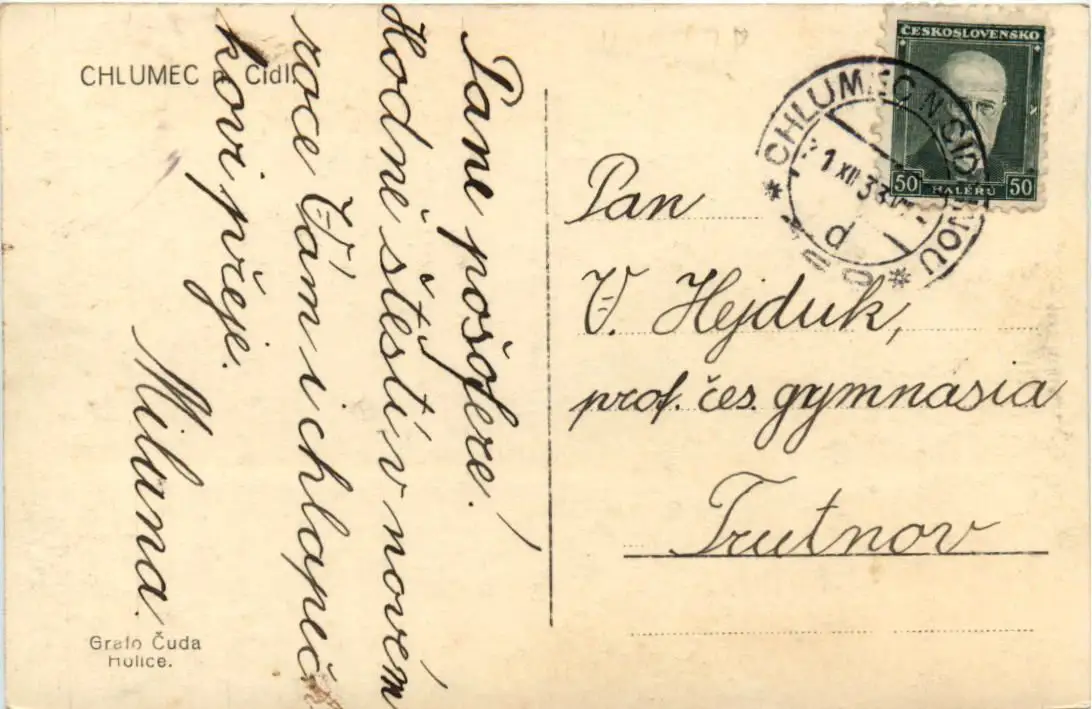 CHLUMEC n Cidl
Pane pošofere!
Hodně štěstí v novém
roce Vám i chlapeč
kovi přeje.
Milana.
Grafo Čuda
Holice.
ČESKOSLOVENSKO
50 HALÉRŮ 50
CHLUMEC N. CIDLINOU
1 XII 33
d
Pan
V. Hejduk,
prof. čes. gymnasia
Trutnov